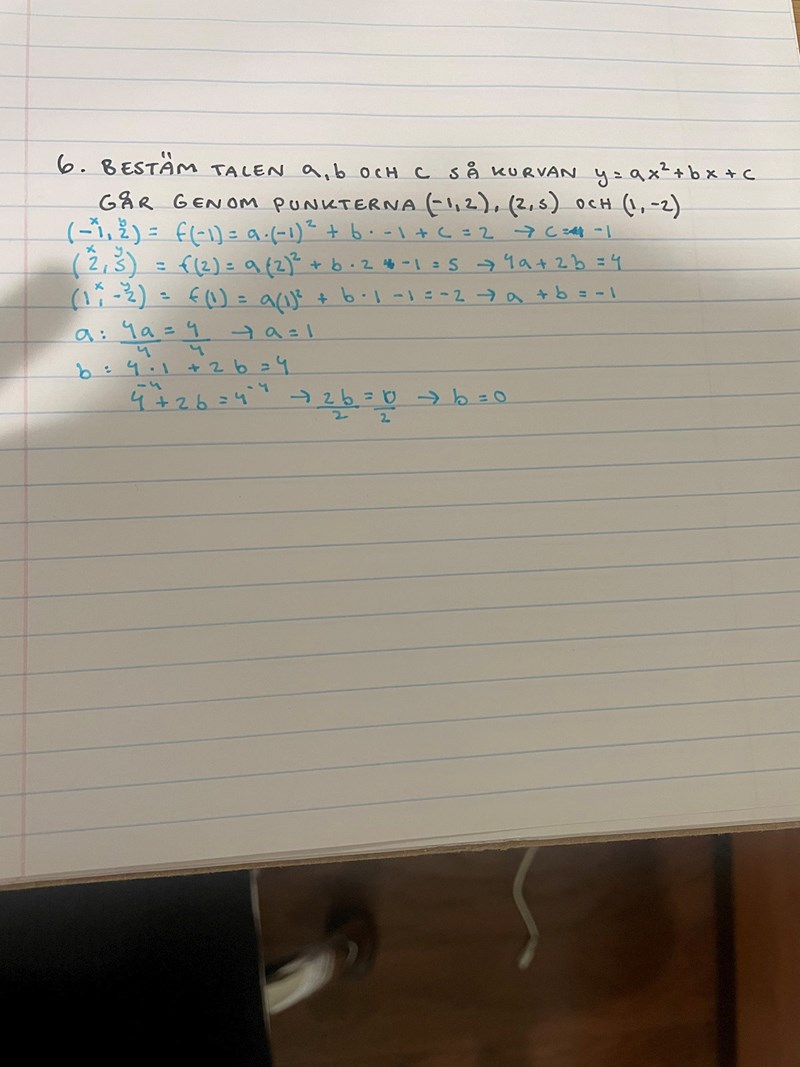 6. BESTÄM TALEN a, b OCH C SÅ KURVAN y = ax² + bx + c
GÅR GENOM PUNKTERNA (-1, 2), (2, 5) OCH (1, -2)
x b
(-1, 2) = f(-1) = a·(-1)² + b · -1 + c = 2 → c = -1
x y
(2, 5) = f(2) = a(2)² + b · 2 -1 = 5 → 4a + 2b = 4
x y
(1, -2) = f(1) = a(1)² + b · 1 - 1 = -2 → a + b = -1
a: 4a/4 = 4/4 → a = 1
b: 4 · 1 + 2b = 4
4⁻⁴ + 2b = 4⁻⁴ → 2b/2 = 0/2 → b = 0